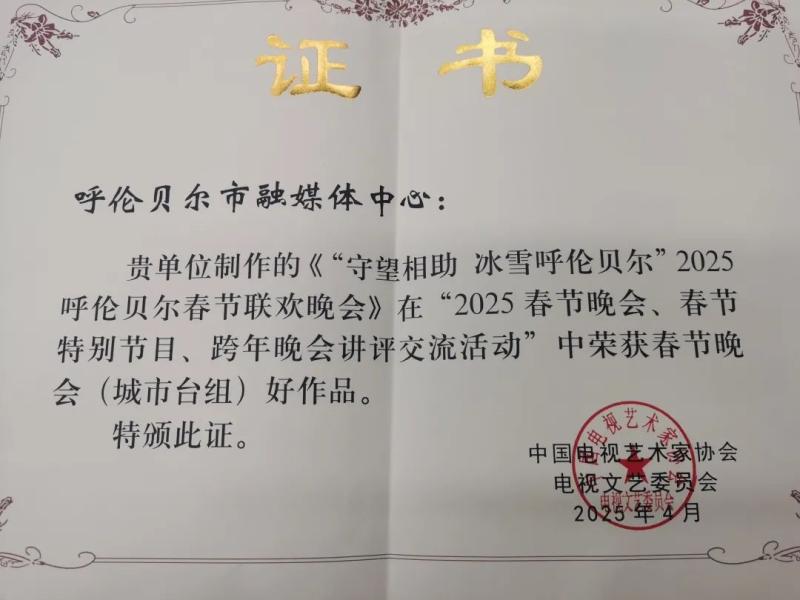 证书
呼伦贝尔市融媒体中心：
贵单位制作的《“守望相助 冰雪呼伦贝尔”2025
呼伦贝尔春节联欢晚会》在“2025 春节晚会、春节
特别节目、跨年晚会讲评交流活动”中荣获春节晚
会（城市台组）好作品。
特颁此证。
中国电视艺术家协会
电视文艺委员会
2025年4月
中国电视艺术家协会
电视文艺委员会